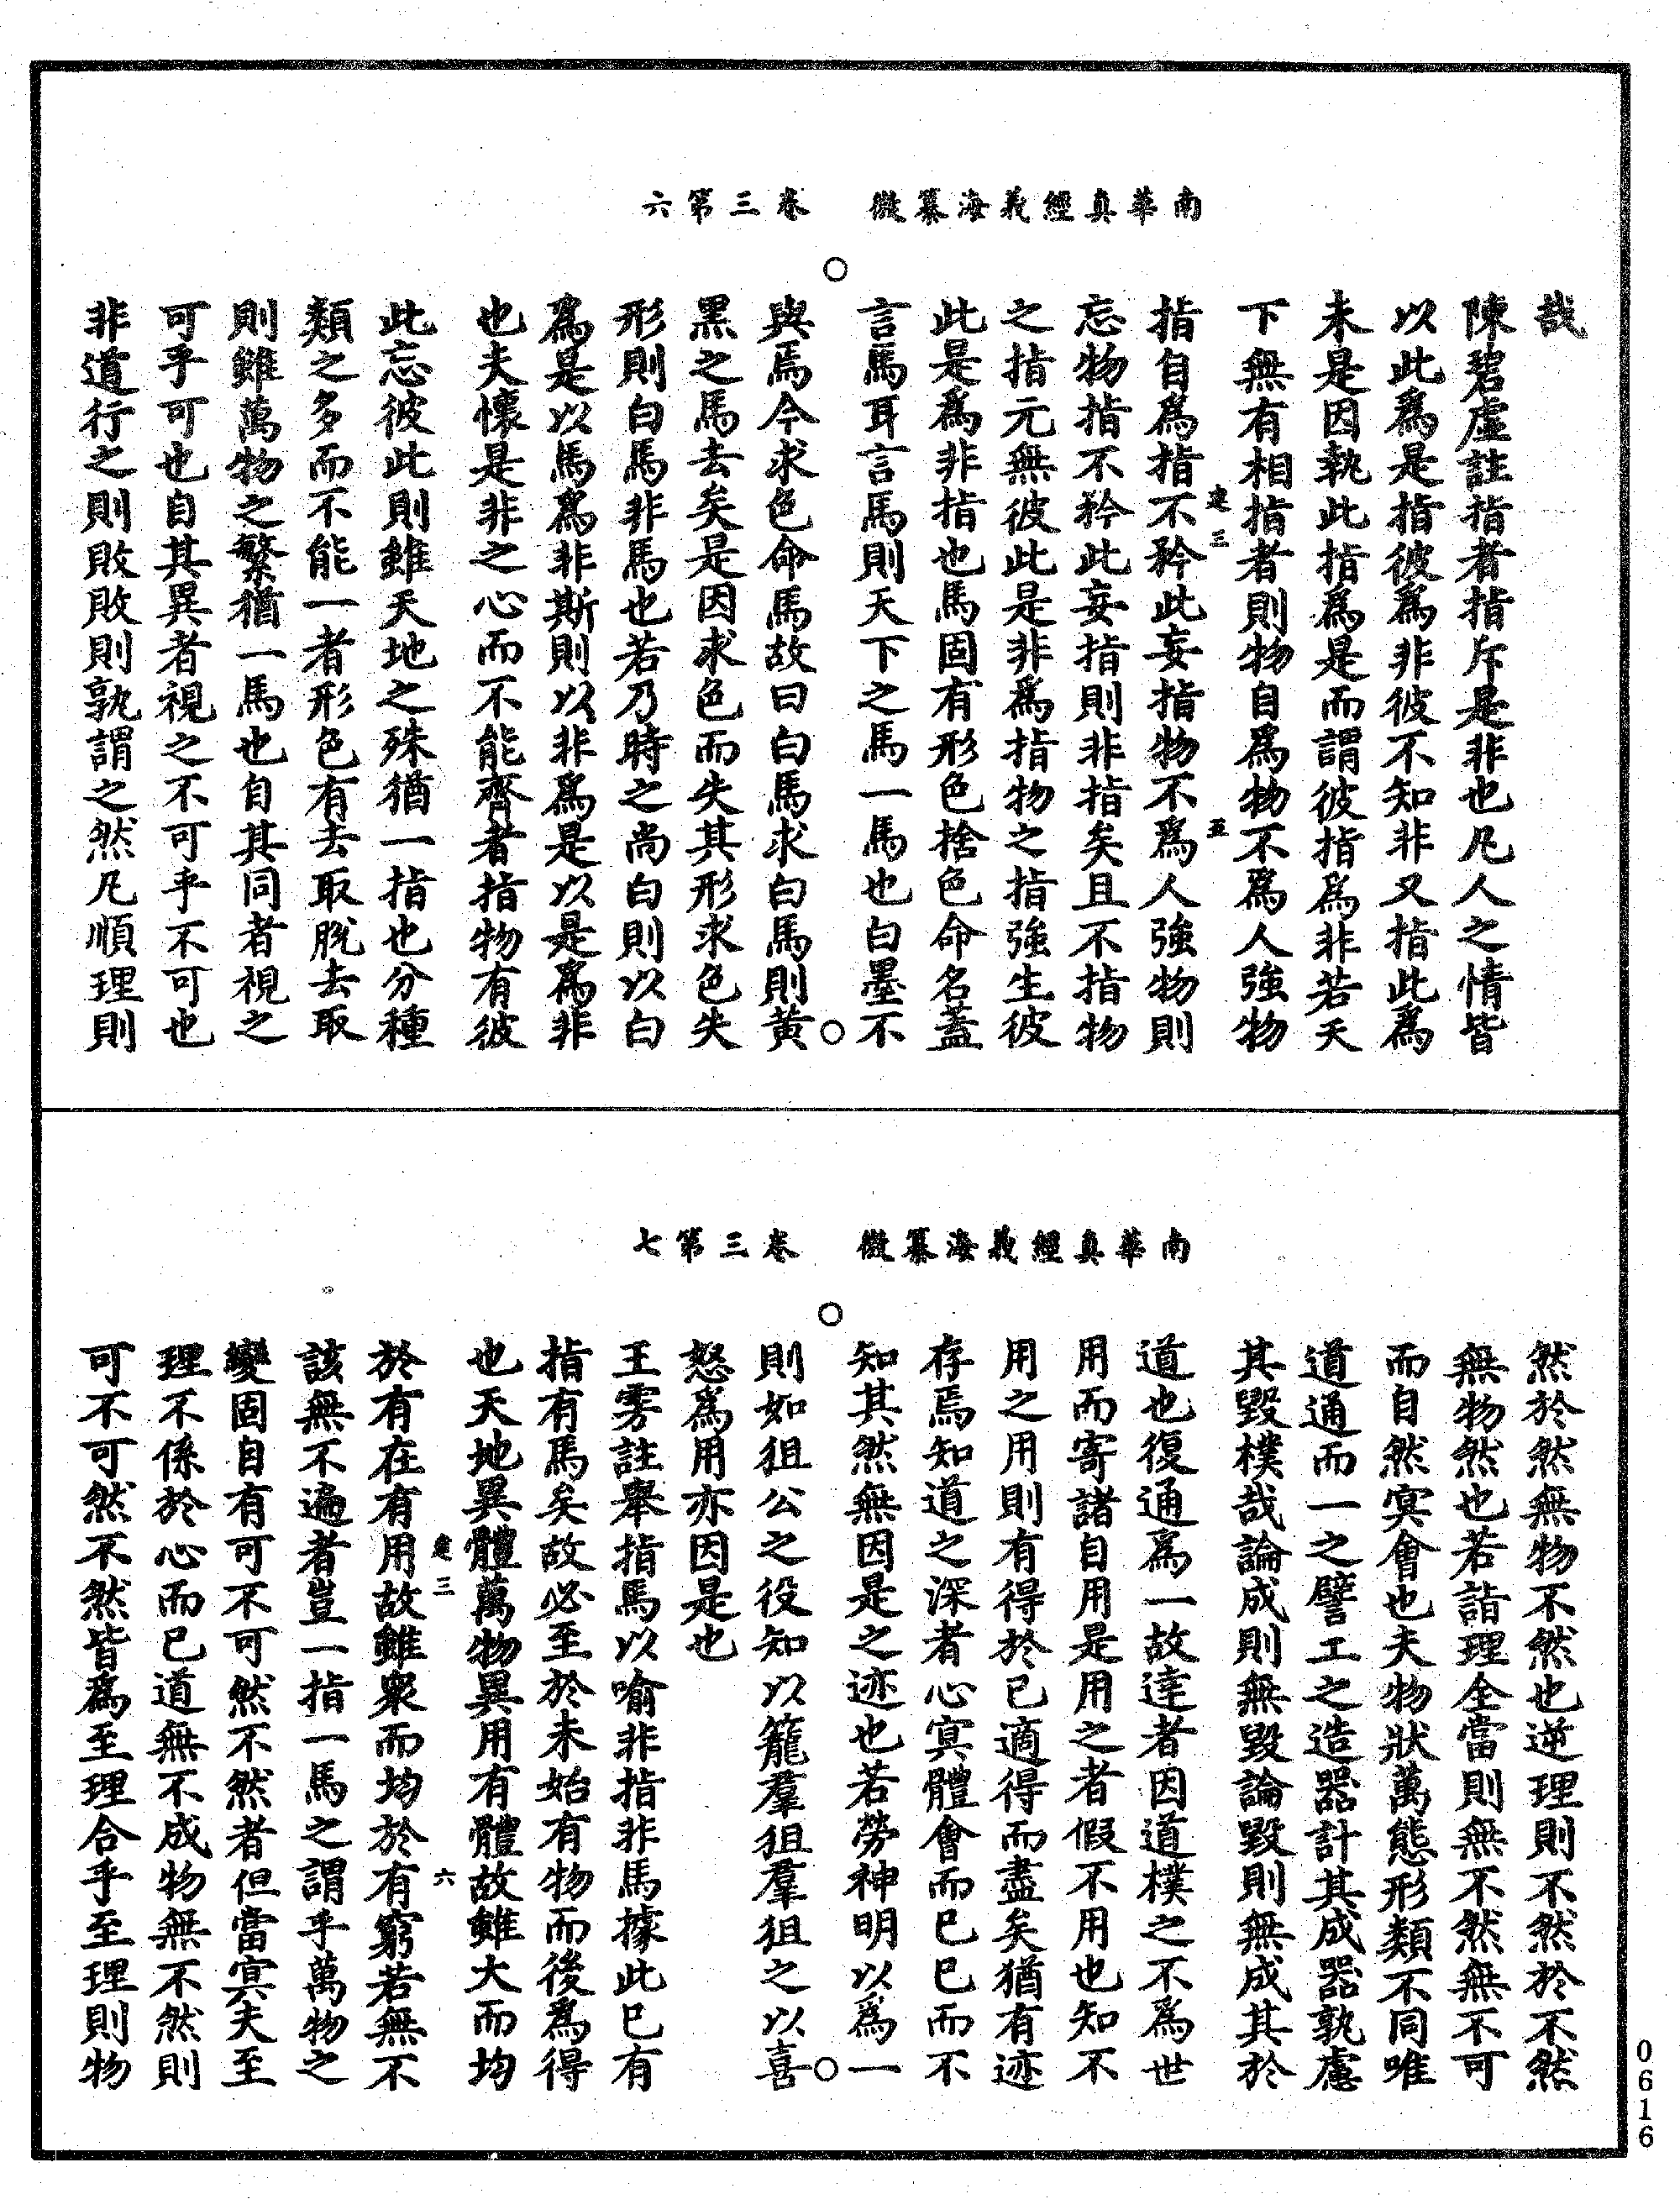 南華真經義海纂微　卷三第六
哉
陳碧虛註指者指斥是非也凡人之情皆
以此為是指彼為非彼不知非又指此為
未是因執此指為是而謂彼指為非若天
下無有相指者則物自為物不為人強物
疌三　五
指自為指不矜此妄指物不為人強物則
忘物指不矜此妄指則非指矣且不指物
之指元無彼此是非為指物之指強生彼
此是為非指也馬固有形色捨色命名蓋
言馬耳言馬則天下之馬一馬也白墨不
與焉今求色命馬故曰白馬求白馬則黃
黑之馬去矣是因求色而失其形求色失
形則白馬非馬也若乃時之尚白則以白
為是以馬為非斯則以非為是以是為非
也夫懷是非之心而不能齊者指物有彼
此忘彼此則雖天地之殊猶一指也分種
類之多而不能一者形色有去取脫去取
則雖萬物之繁猶一馬也自其同者視之
可乎可也自其異者視之不可乎不可也
非道行之則敗敗則孰謂之然凡順理則
南華真經義海纂微　卷三第七
然於然無物不然也逆理則不然於不然
無物然也若詣理全當則無不然無不可
而自然冥會也夫物狀萬態形類不同唯
道通而一之譬工之造器計其成器孰慮
其毀樸哉論成則無毀論毀則無成其於
道也復通為一故達者因道樸之不為世
用而寄諸自用是用之者假不用也知不
用之用則有得於已適得而盡矣猶有迹
存焉知道之深者心冥體會而已已而不
知其然無因是之迹也若勞神明以為一
則如狙公之役知以籠羣狙羣狙之以喜
怒為用亦因是也
王雱註舉指馬以喻非指非馬據此已有
指有馬矣故必至於未始有物而後為得
也天地異體萬物異用有體故雖大而均
疌三　六
於有在有用故雖衆而均於有窮若無不
該無不遍者豈一指一馬之謂乎萬物之
變固自有可不可然不然者但當冥夫至
理不係於心而已道無不成物無不然則
可不可然不然皆為至理合乎至理則物
0616